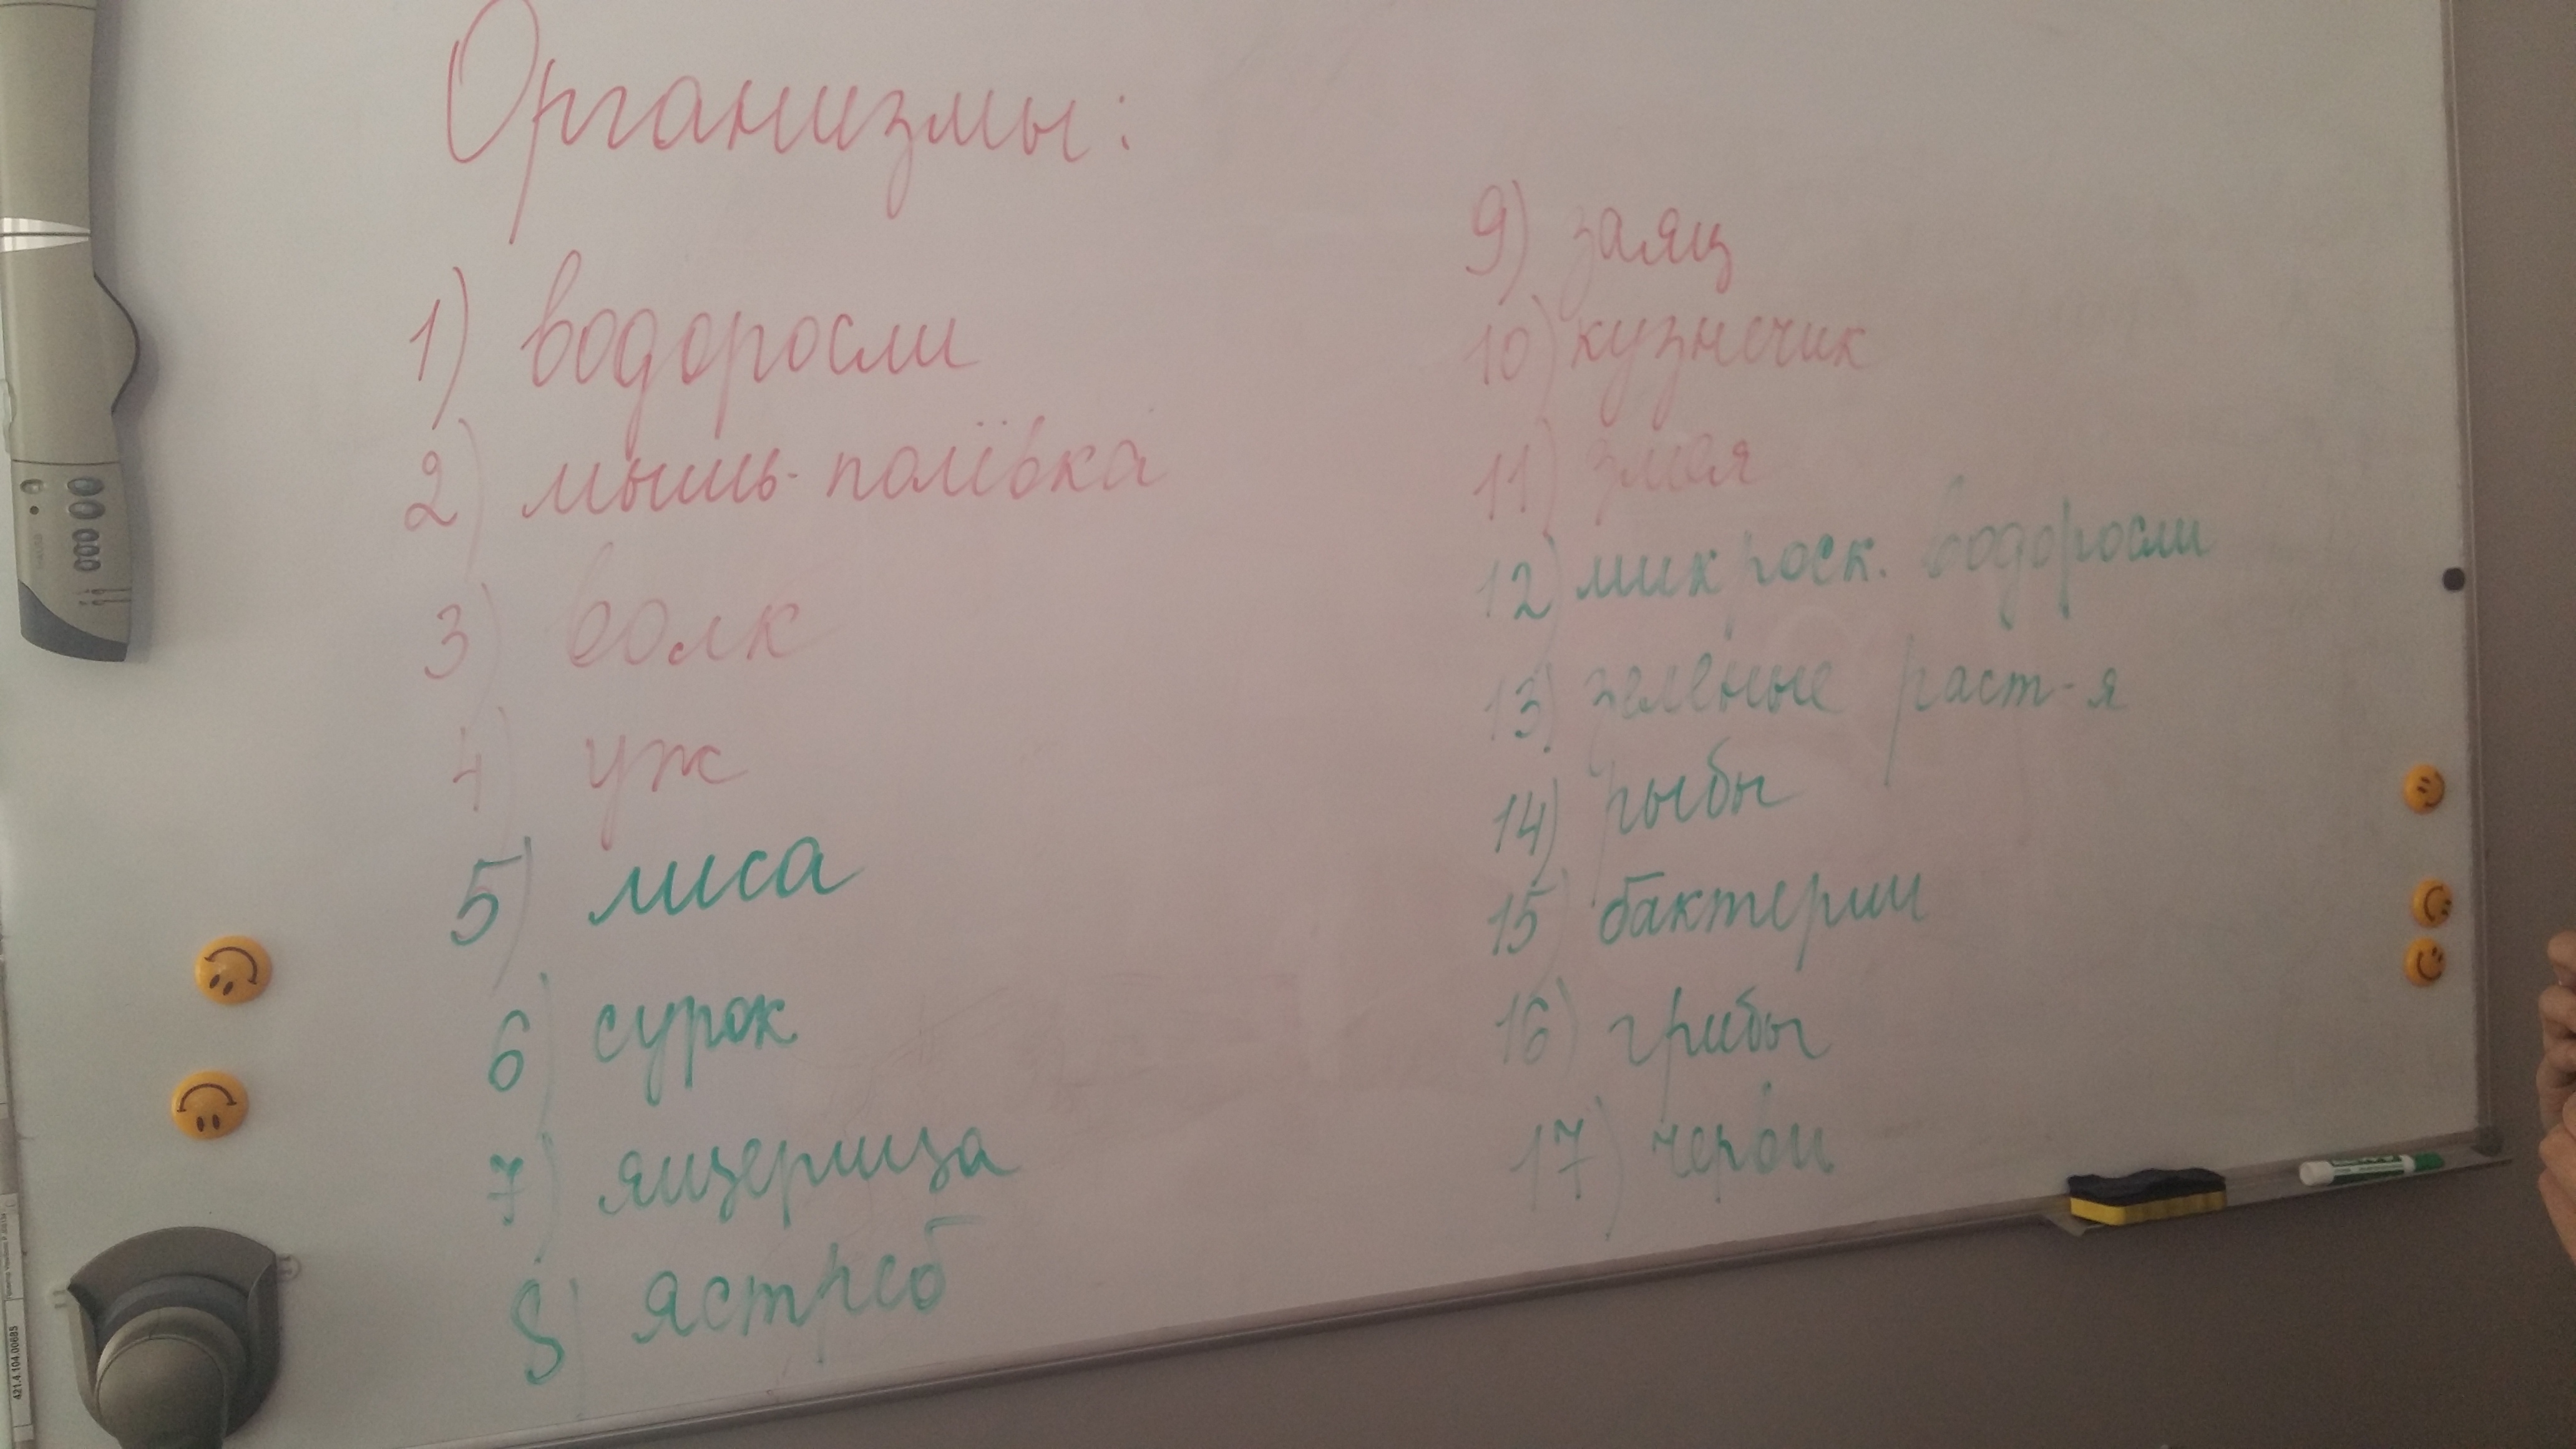 Организмы:
1) водоросли
2) мышь-полёвка
3) волк
4) уж
5) лиса
6) сурок
7) ящерица
8) ястреб
9) заяц
10) кузнечик
11) змея
12) микроск. водоросли
13) зелёные раст-я
14) рыбы
15) бактерии
16) грибы
17) черви
421.4.104.00685